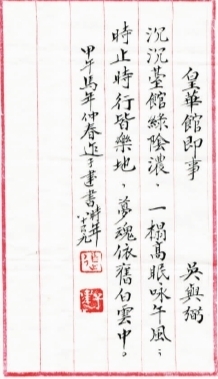 皇華館即事　吳與弼
沉沉臺館綠陰濃、一榻高眠咏午風；
時止時行皆樂地、夢魂依舊白雲中。
甲午馬年仲春進子建書時年